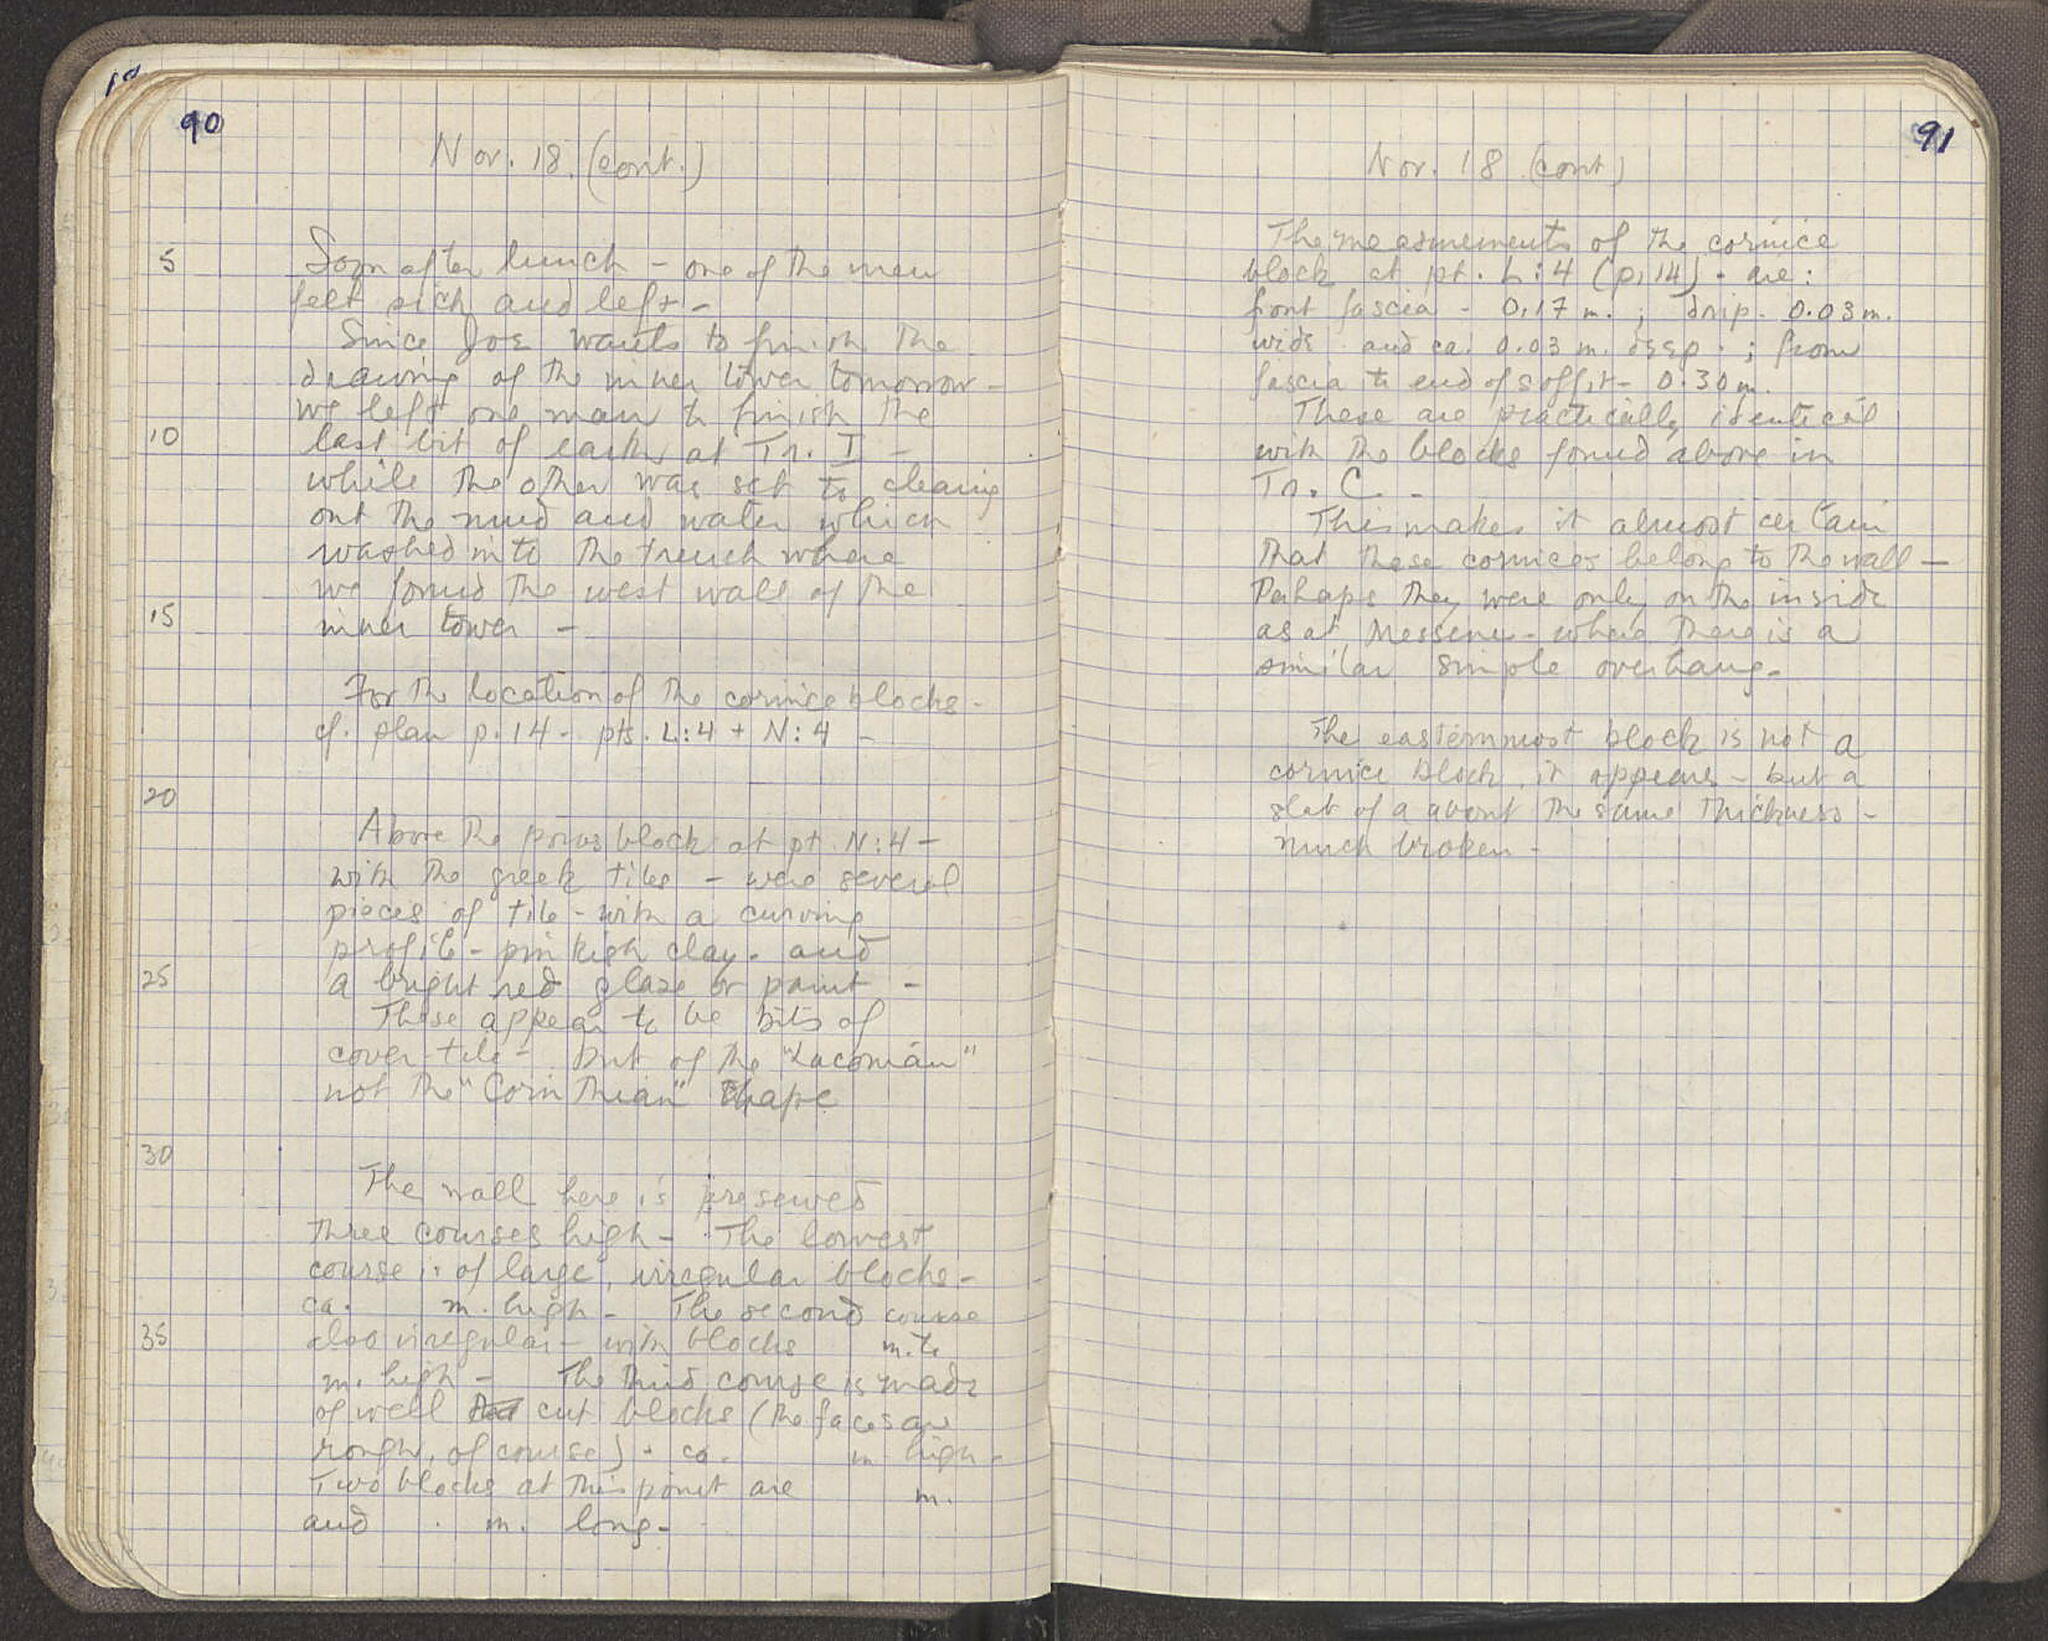 90
Nov. 18. (cont.)
5
Soon after lunch - one of the men
felt sick and left -
Since Joe wants to finish the
drawing of the inner tower tomorrow -
we left one man to finish the
10
last bit of earth at Tr. I -
while the other was set to cleaning
out the mud and water which
washed into the trench where
we found the west wall of the
15
inner tower -
For the location of the cornice blocks -
cf. plan p. 14 - pts. L:4 + N:4 -
20
Above the poros block at pt. N:4 -
with the greek tiles - were several
pieces of tile - with a curving
profile - pinkish clay - and
25
a bright red glaze or paint -
These appear to be bits of
cover-tile - but of the "Laconian"
not the "Corinthian" shape
30
The wall here is preserved
three courses high - The lowest
course is of large, irregular blocks -
ca. m. high - The second course
35
also irregular - with blocks m. to
m. high - The third course is made
of well cut blocks (the faces are
rough, of course) - ca. m high -
Two blocks at this point are m.
and . m. long -
91
Nov. 18 (cont)
The measurements of the cornice
block at pt. L:4 (p. 14) - are:
front fascia - 0.17 m. ; drip - 0.03 m.
wide and ca. 0.03 m. deep ; from
fascia to end of soffit - 0.30 m.
These are practically identical
with the blocks found above in
Tr. C -
This makes it almost certain
that these cornices belong to the wall -
Perhaps they were only on the inside
as at Messene - where there is a
similar simple overhang -
The easternmost block is not a
cornice block, it appears - but a
slab of a about the same thickness -
much broken -